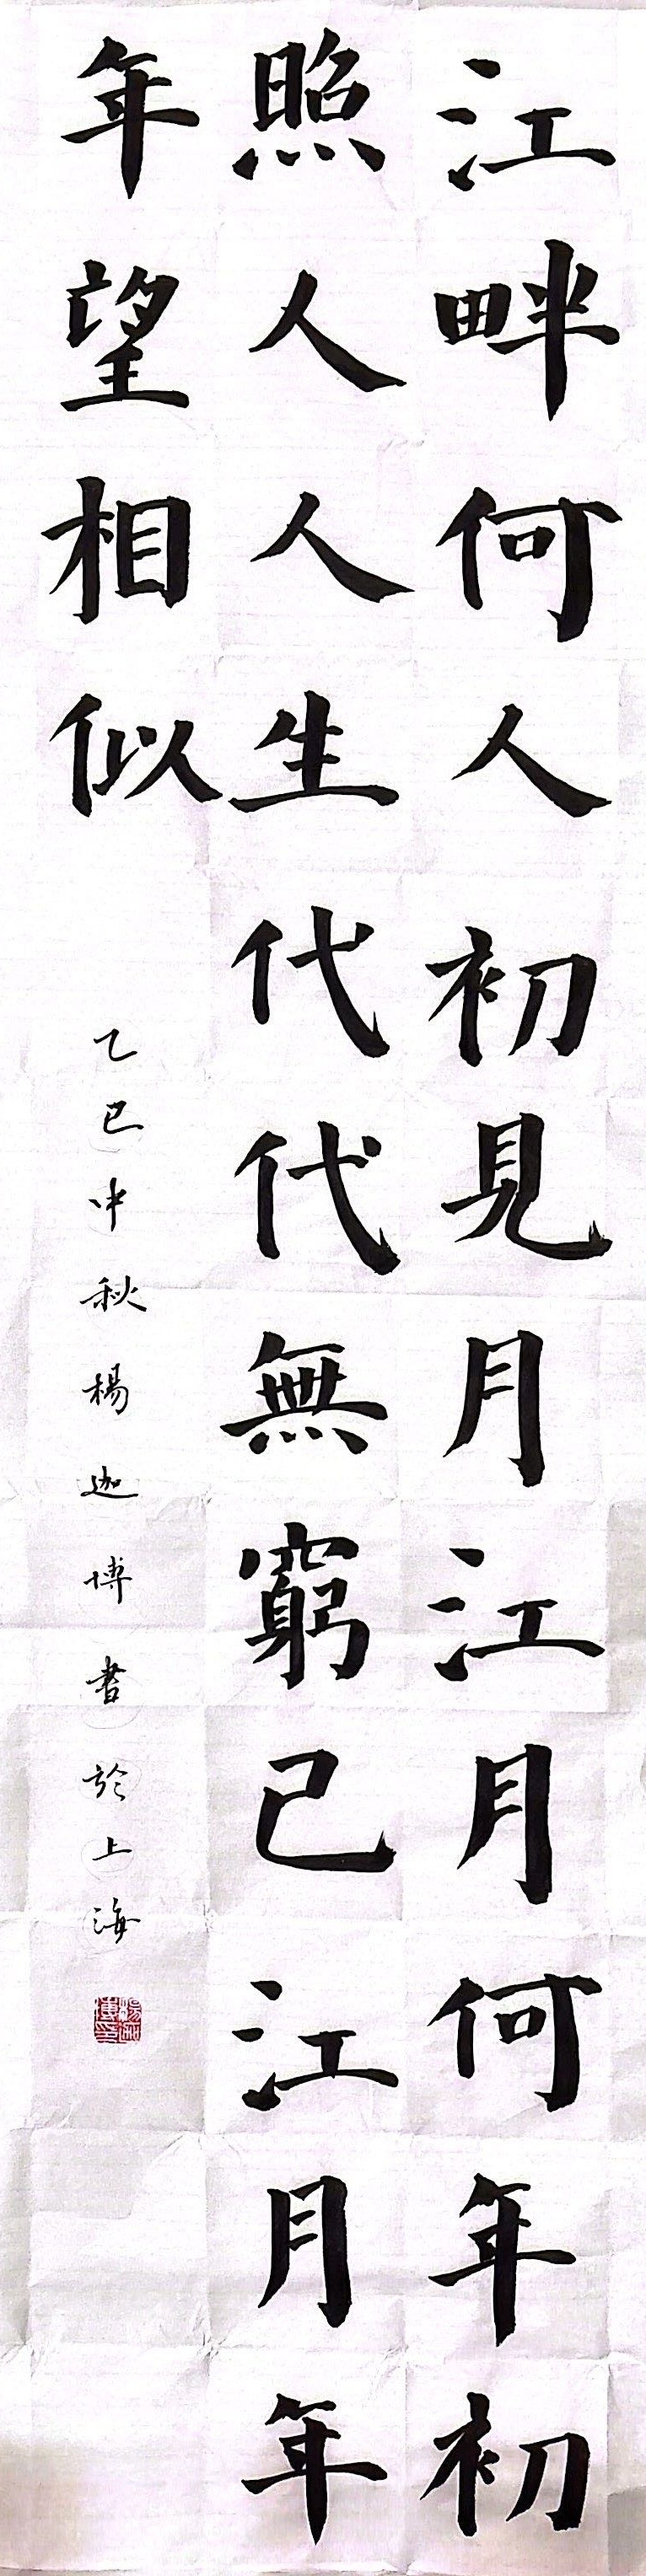 江畔何人初見月江月何年初
照人人生代代無窮已江月年
年望相似
乙巳中秋楊迦博書於上海